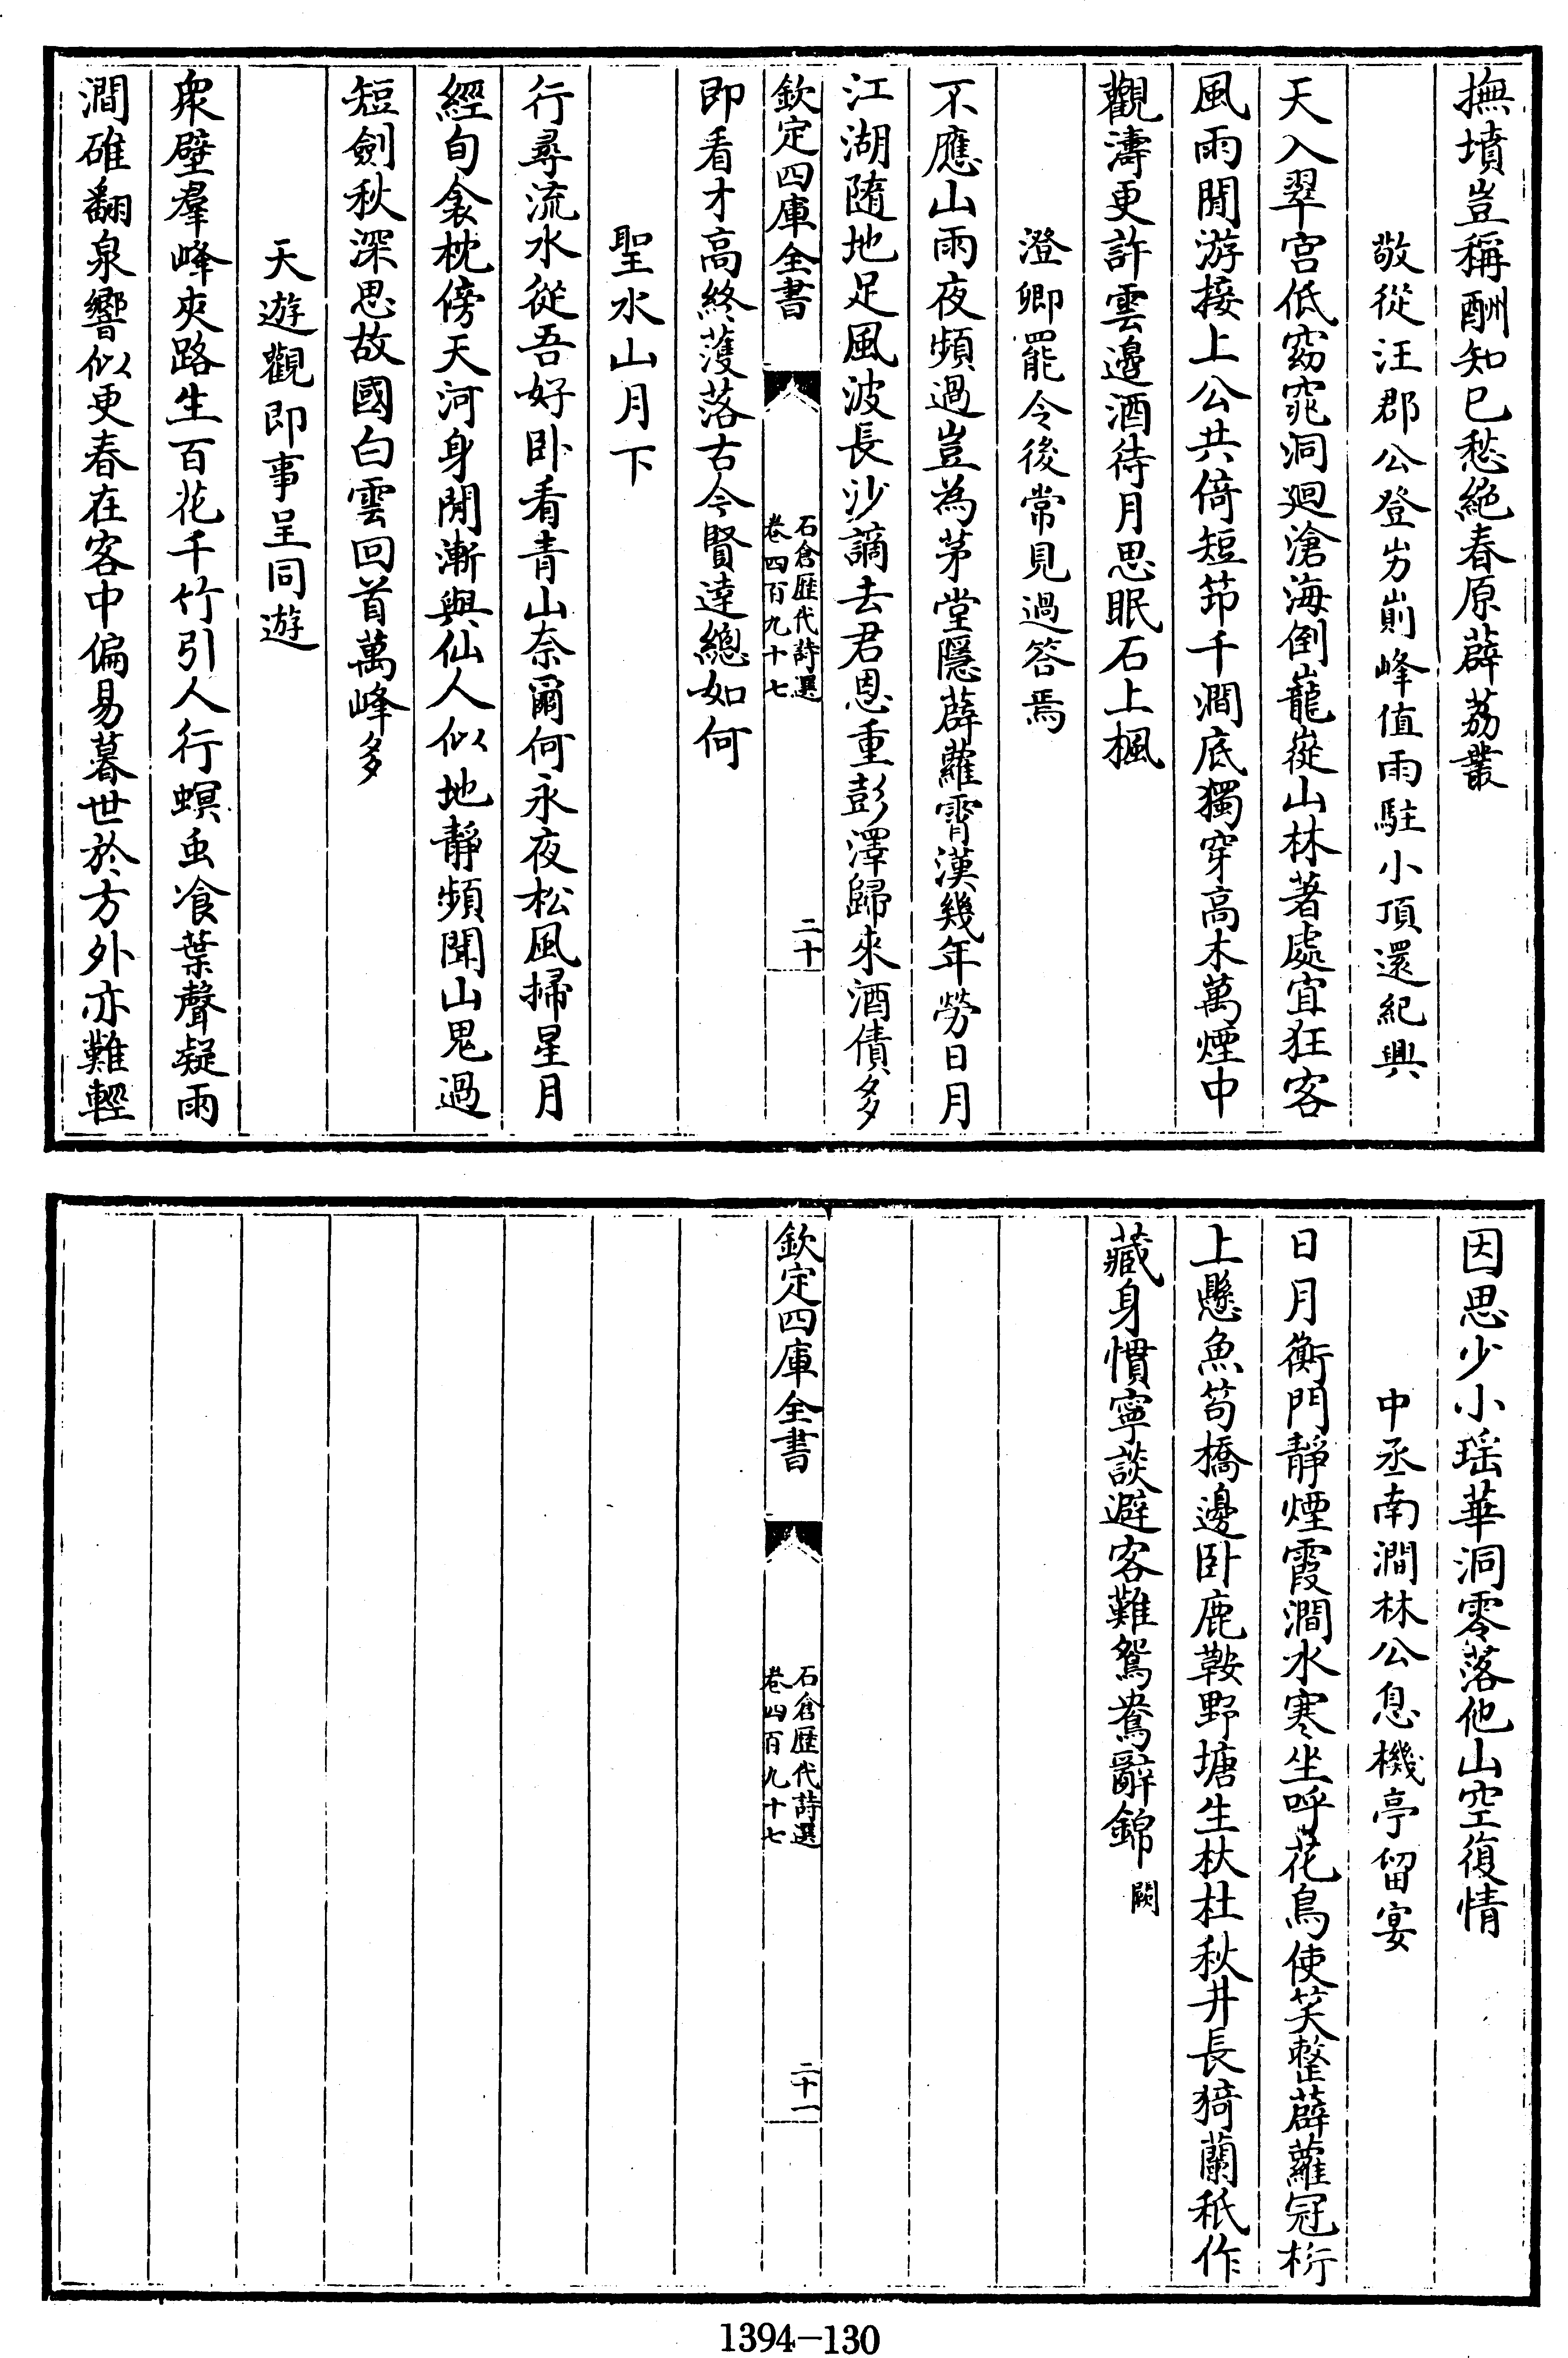 撫墳豈稱酬知已愁絶春原薜荔叢
敬從汪郡公登岃崱峰值雨駐小頂還紀興
天入翠宫低窈窕洞迴滄海倒巃嵸山林著處宜狂客
風雨閒游接上公共倚短笻千澗底獨穿高木萬煙中
觀濤更許雲邊酒待月思眠石上楓
澄卿罷令後常見過答焉
不應山雨夜頻過豈為茅堂隱薜蘿霄漢幾年勞日月
江湖隨地足風波長沙謫去君恩重彭澤歸來酒債多
欽定四庫全書
石倉歷代詩選
卷四百九十七
二十
即看才高終濩落古今賢達總如何
聖水山月下
行尋流水從吾好卧看青山奈爾何永夜松風掃星月
經旬衾枕傍天河身閒漸與仙人似地靜頻聞山鬼過
短劍秋深思故國白雲回首萬峰多
天遊觀即事呈同遊
衆壁羣峰夾路生百花千竹引人行螟虫飡葉聲疑雨
澗碓翻泉響似更春在客中偏易暮世於方外亦難輕
因思少小瑶華洞零落他山空復情
中丞南澗林公息機亭留宴
日月衡門靜煙霞澗水寒坐呼花鳥使笑整薜蘿冠桁
上懸魚笱橋邊卧鹿鞍野塘生杕杜秋井長猗蘭秖作
藏身慣寧談避客難鴛鴦辭錦闕
欽定四庫全書
石倉歷代詩選
卷四百九十七
二十一
1394—130